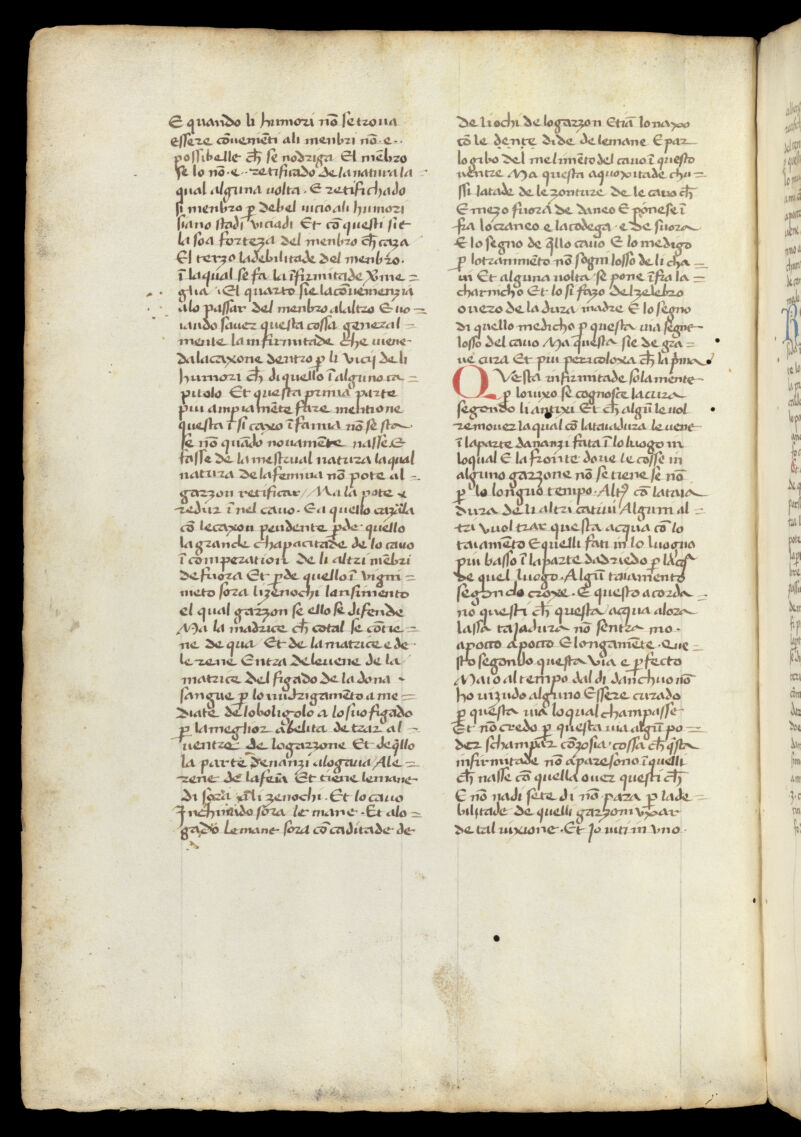 E quando li humori nō se troua
essere cōueniēti ali menbri nō · e ·
possibelle ch̄ se nodriga El mēbro
se lo nō · e · retificado de la natura la
qual alguna uolta · E retifichado
si menbro ꝑ debel uicio ali humori
siano stadi uiciadi Et cō questi sie
la soa forteza del menbro ch̄ caza
El terzo la debilitade del menbro ·
ī la qual se fa la īfirmitade
glia · El quarto sie la cōuenienzia
alo passar del menbro alaltro E uo =
iando sauer questa cossa general =
mente la infirmitade che uiene
da la caxone dentro ꝑ li vicij de li
humori ch̄ di quello ī alguno ca =
pitolo Et questa prima parte
piu ampiamēte fare mentione
questa ī si caxo ī famia nō se sta
se nō quādo nouamēte nasse E
fasse de la mestrual natura la qual
natura de la femina nō pote al =
garzon retificar / Ma la pote e
redur ī nel cauo · Ea quello
cō le caxon pendente ꝑde quello
la grande chapacitade de lo cauo
ī comperation de li altri mēbri
de fuora Et ꝑde quello ī uigni =
meto sora li zenochi
el qual garzon se ello se difende
Ma la madrice ch̄ cotal se cōtie =
ne de qua · Et de la matrice e de ·
le rene Entra de le uene de la
matrice del figado de la dona
sangue ꝑ lo nudrigamēto a me =
diate de lo boligolo a lo suo figado
ꝑ la meglior abelita de trar al =
uentre de lo garzone Et de q̄llo
la parte denanzi alo gaua / Ale =
rene de la feīa Et tiene le mane ·
di sora ali zenochi · Et lo cauo
Inchinado sora le mane · Et alo =
gado le mane sora cō caditade de
de li ochi de lo garzon Etiā lo naxo
cō le dente di de le mane E par
lo gibo del melimēto del cauo ī questo
uentre Ma questa aquoxitade chu =
ssi la tade de le zonture de le cauo ch̄
E mezo fuora de daneo E ponese ī
fra lo craneo e la codega · e de fuora
E lo segno de q̄llo cauo E lo medigo
ꝑ lo tramimēto nō sogni losso de li cha =
ui Et alguna uolta se pone ī fra la =
charnicho Et lo si fazo del zelebro
ouero de la dura madre E lo segno
di quello medicho ꝑ questa uia segne
losso del cauo Ma questa sie de gra =
ue cura Et piu pericoloxa ch̄ la p̄ma
Questa infirmitade solamente
ꝑ lo uixo se cognosce la cura
segondo li antixi Et ch̄ algū le uol
remouer la qual cō la taiadura le uene
ī la parte dananzi fata ī lo luogo in
lo qual E la fronte doue le cosse in
alguno garzone nō se tiene se nō
ꝑ lo longuo tempo · cō la taia
dura de li altri catiui Algum al =
tri uuol trar questa acqua cō lo
taiamēto E quelli fati in lo luogno
piu basso ī la parte dadriedo ꝑ
de quel luogo · Algū taiamento
segondo croxe · E questo acorda =
no questi ch̄ questa acqua alora
lassa taiadura nō sentra mo ·
a pocco a pocco E longamēte · Que =
sto segondo questa via e ꝑfecto
Ma io al tempo dal di danchuo nō
ho uizudo alguno Essere curado
ꝑ questa uia lo qual champasse
Et nō credo ꝑ questa uia algū po =
der schampar cōzosia cossa ch̄ q̄sta
infirmitade nō aparesono ī quelli
ch̄ nasse cō quella ouer questi ch̄
E nō nadi sete di nō para ꝑ la de =
bilitade de quelli garzoni
de tal uixione · Et Jo uiti in vno ·